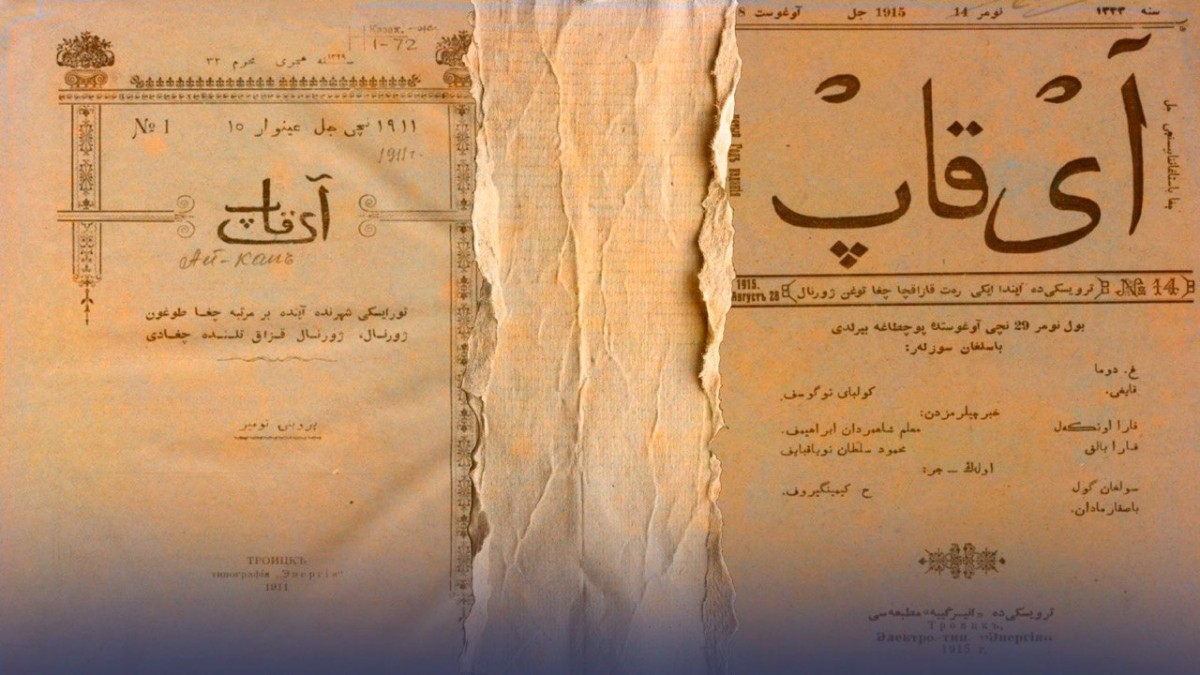 І-72
۱۳۲۹ نه هجری محرم ۲۳
№ 1
۱۹۱۱ نچی جل عینوار ۱۵
1911 г.
آی قاپ
Ай-капъ
تورایسکی شهرنده آینده بر مرتبه چغا طوغون
ژورنال، ژورنال قزاق تلنده چغادی
برونی نومیر
ТРОИЦКЪ
типографія „Энергія“
1911
سنه ۱۳۳۳
نومر 14
1915 جل
آوغوست
آی قاپ
1915.
Августъ 28
ترویسکی‌ده آیندا ایکی رەت قازاقچا چغا توغن ژورنال
№ 14
بول نومر 29 نچی آوغوستدۀ پوچطاغه بیرلدی
باسلغان سوزلەر:
غ. دوما
قایغی.
کولبای توگوسف.
خبرچیلرمزدن:
قارا اوتکەل
معلم شاهمردان ابراهیمف.
قارا بالق
محمود سلطان
اولڭ ــ جر:
سولغان گول
ح کیمینگیروف.
باصقارمادان.
ترویسکی‌ده «انیرگیه» مطبعەسی
Троицкъ,
Электро-тип. „Энергія“
1915 г.